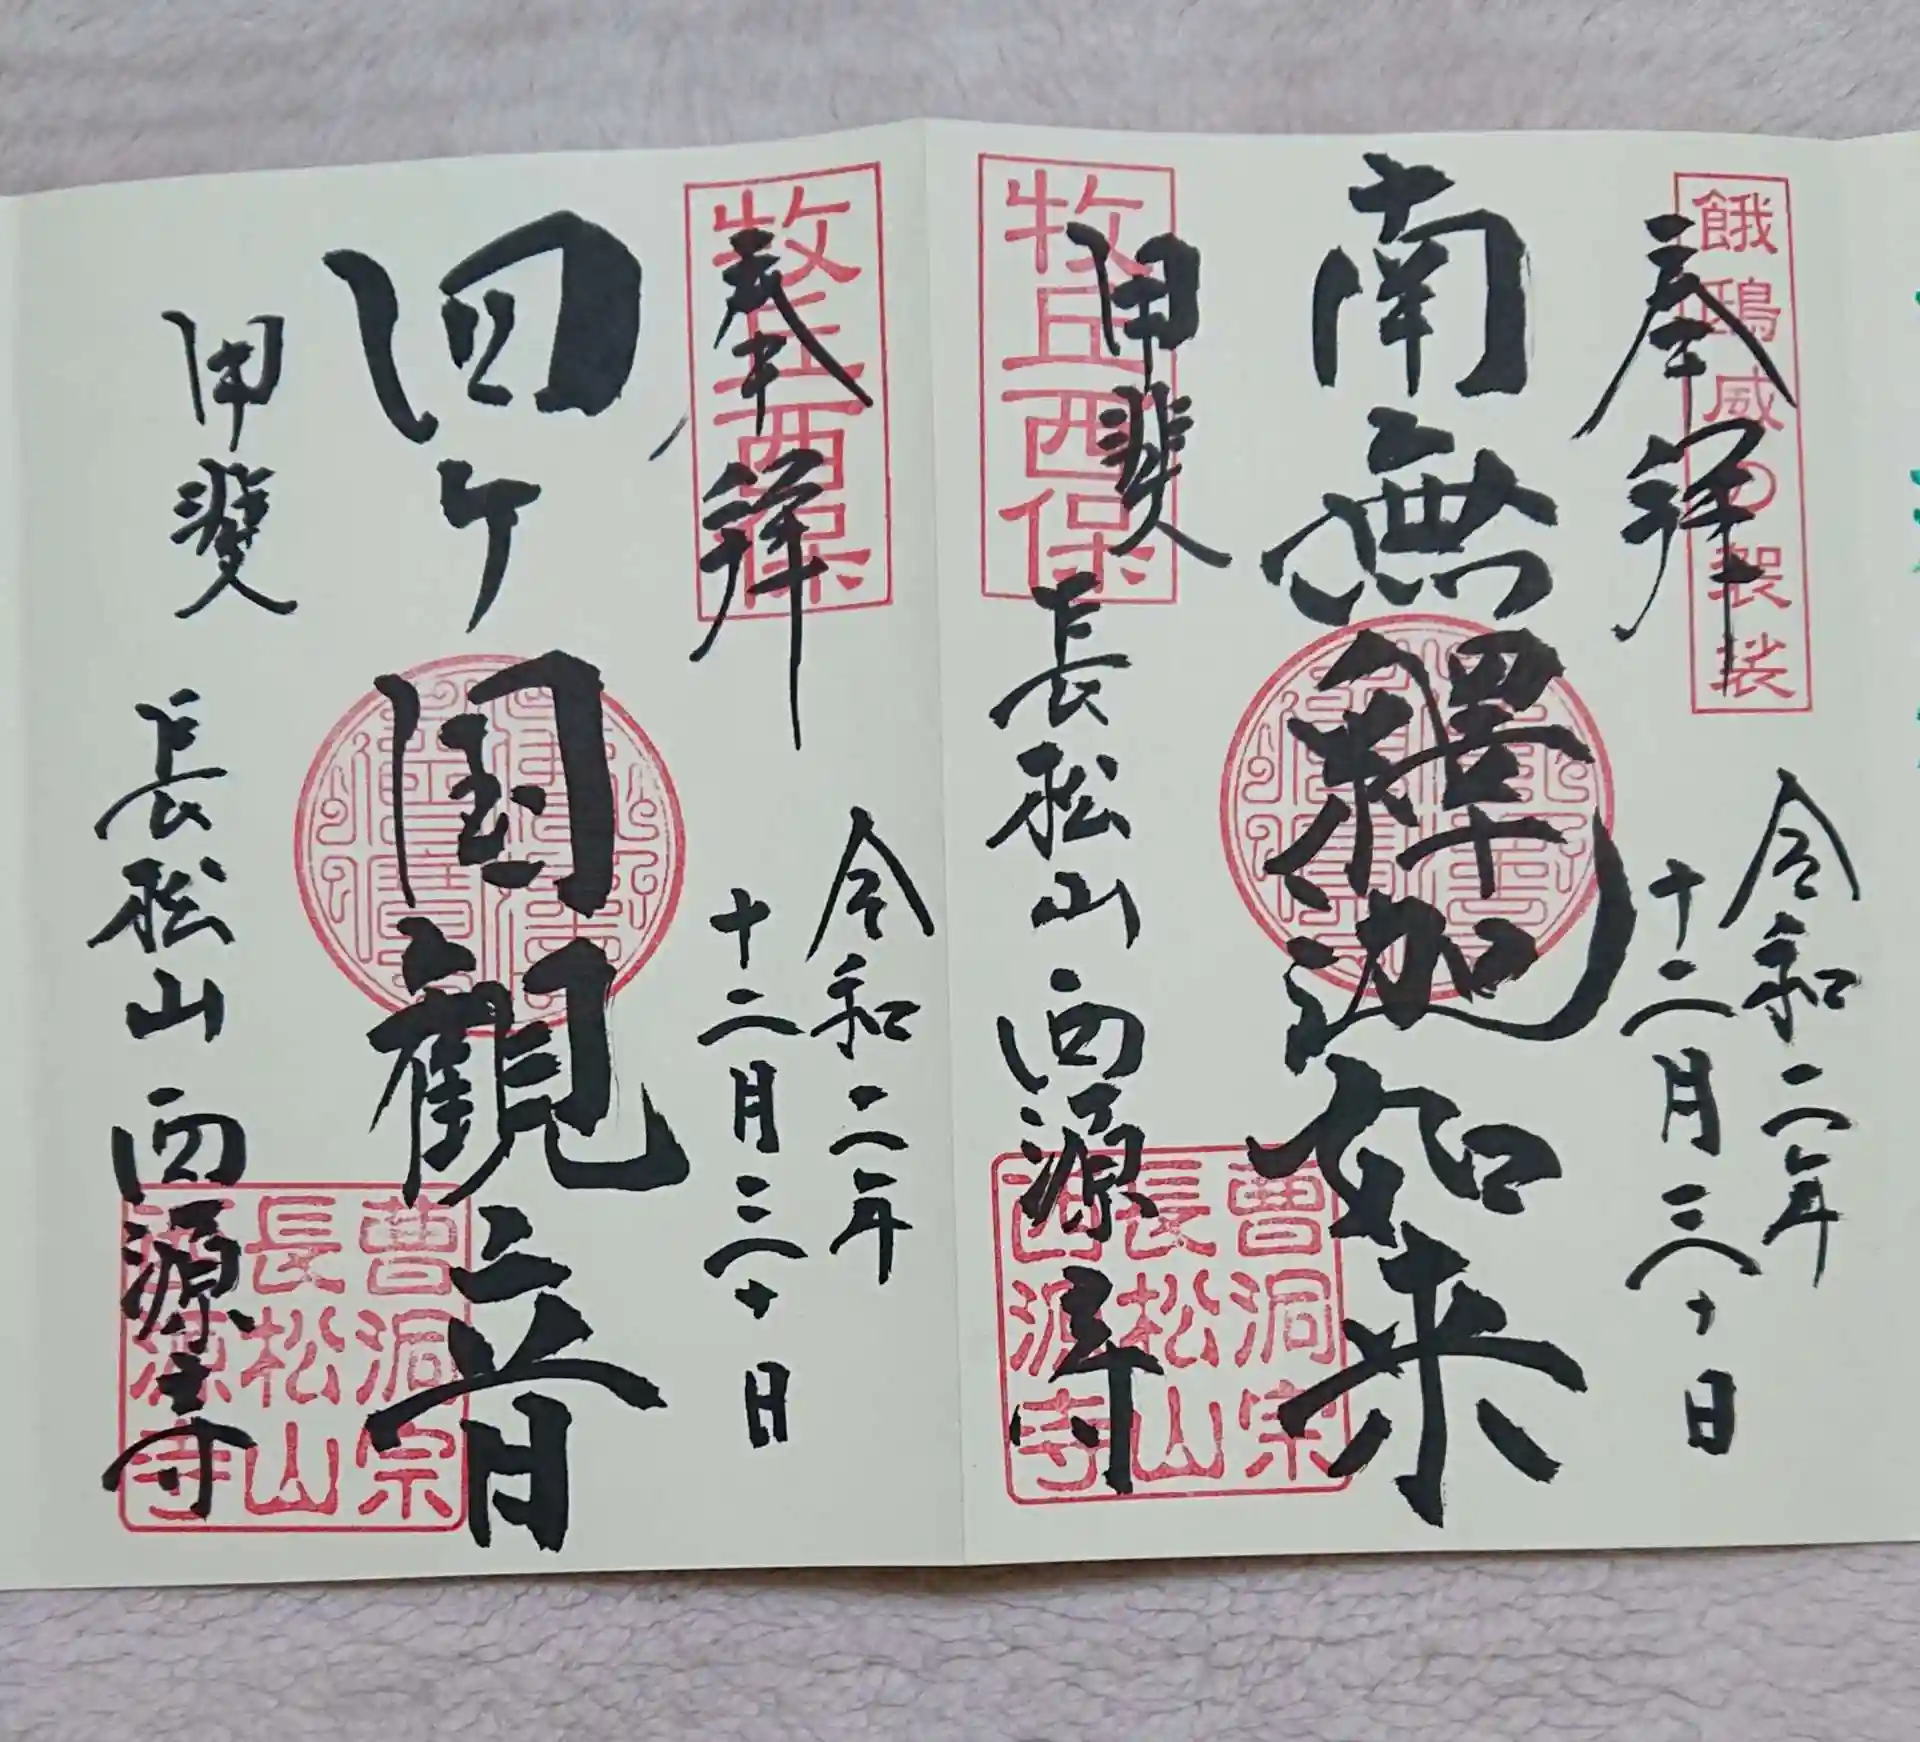 餓鴟威の袈裟
奉拝
令和二年
十二月三十日
南無釋迦如来
牧丘西保
甲斐
長松山
西源寺
曹洞宗
長松山
西源寺
牧丘西保
奉拝
令和二年
十二月三十日
四ケ国觀音
甲斐
長松山
西源寺
曹洞宗
長松山
西源寺